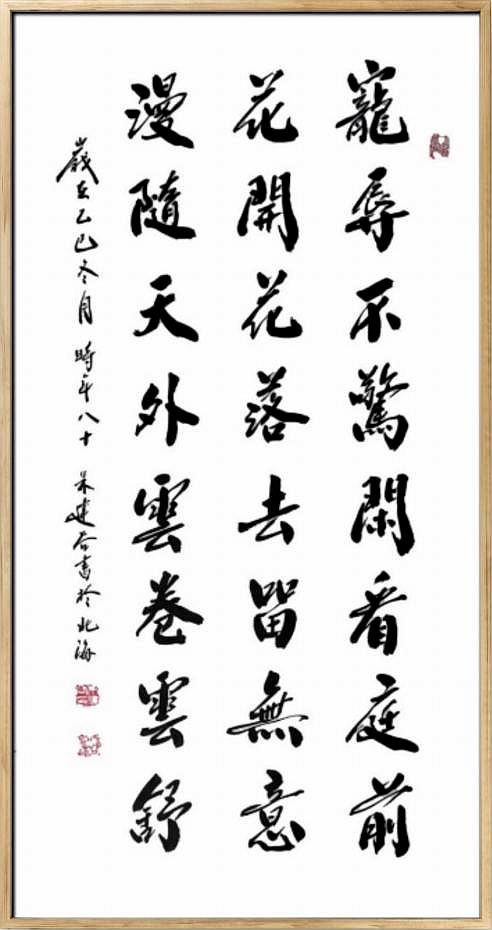 寵辱不驚閑看庭前
花開花落去留無意
漫隨天外雲卷雲舒
歲在乙巳冬月 時年八十 建合書於北海